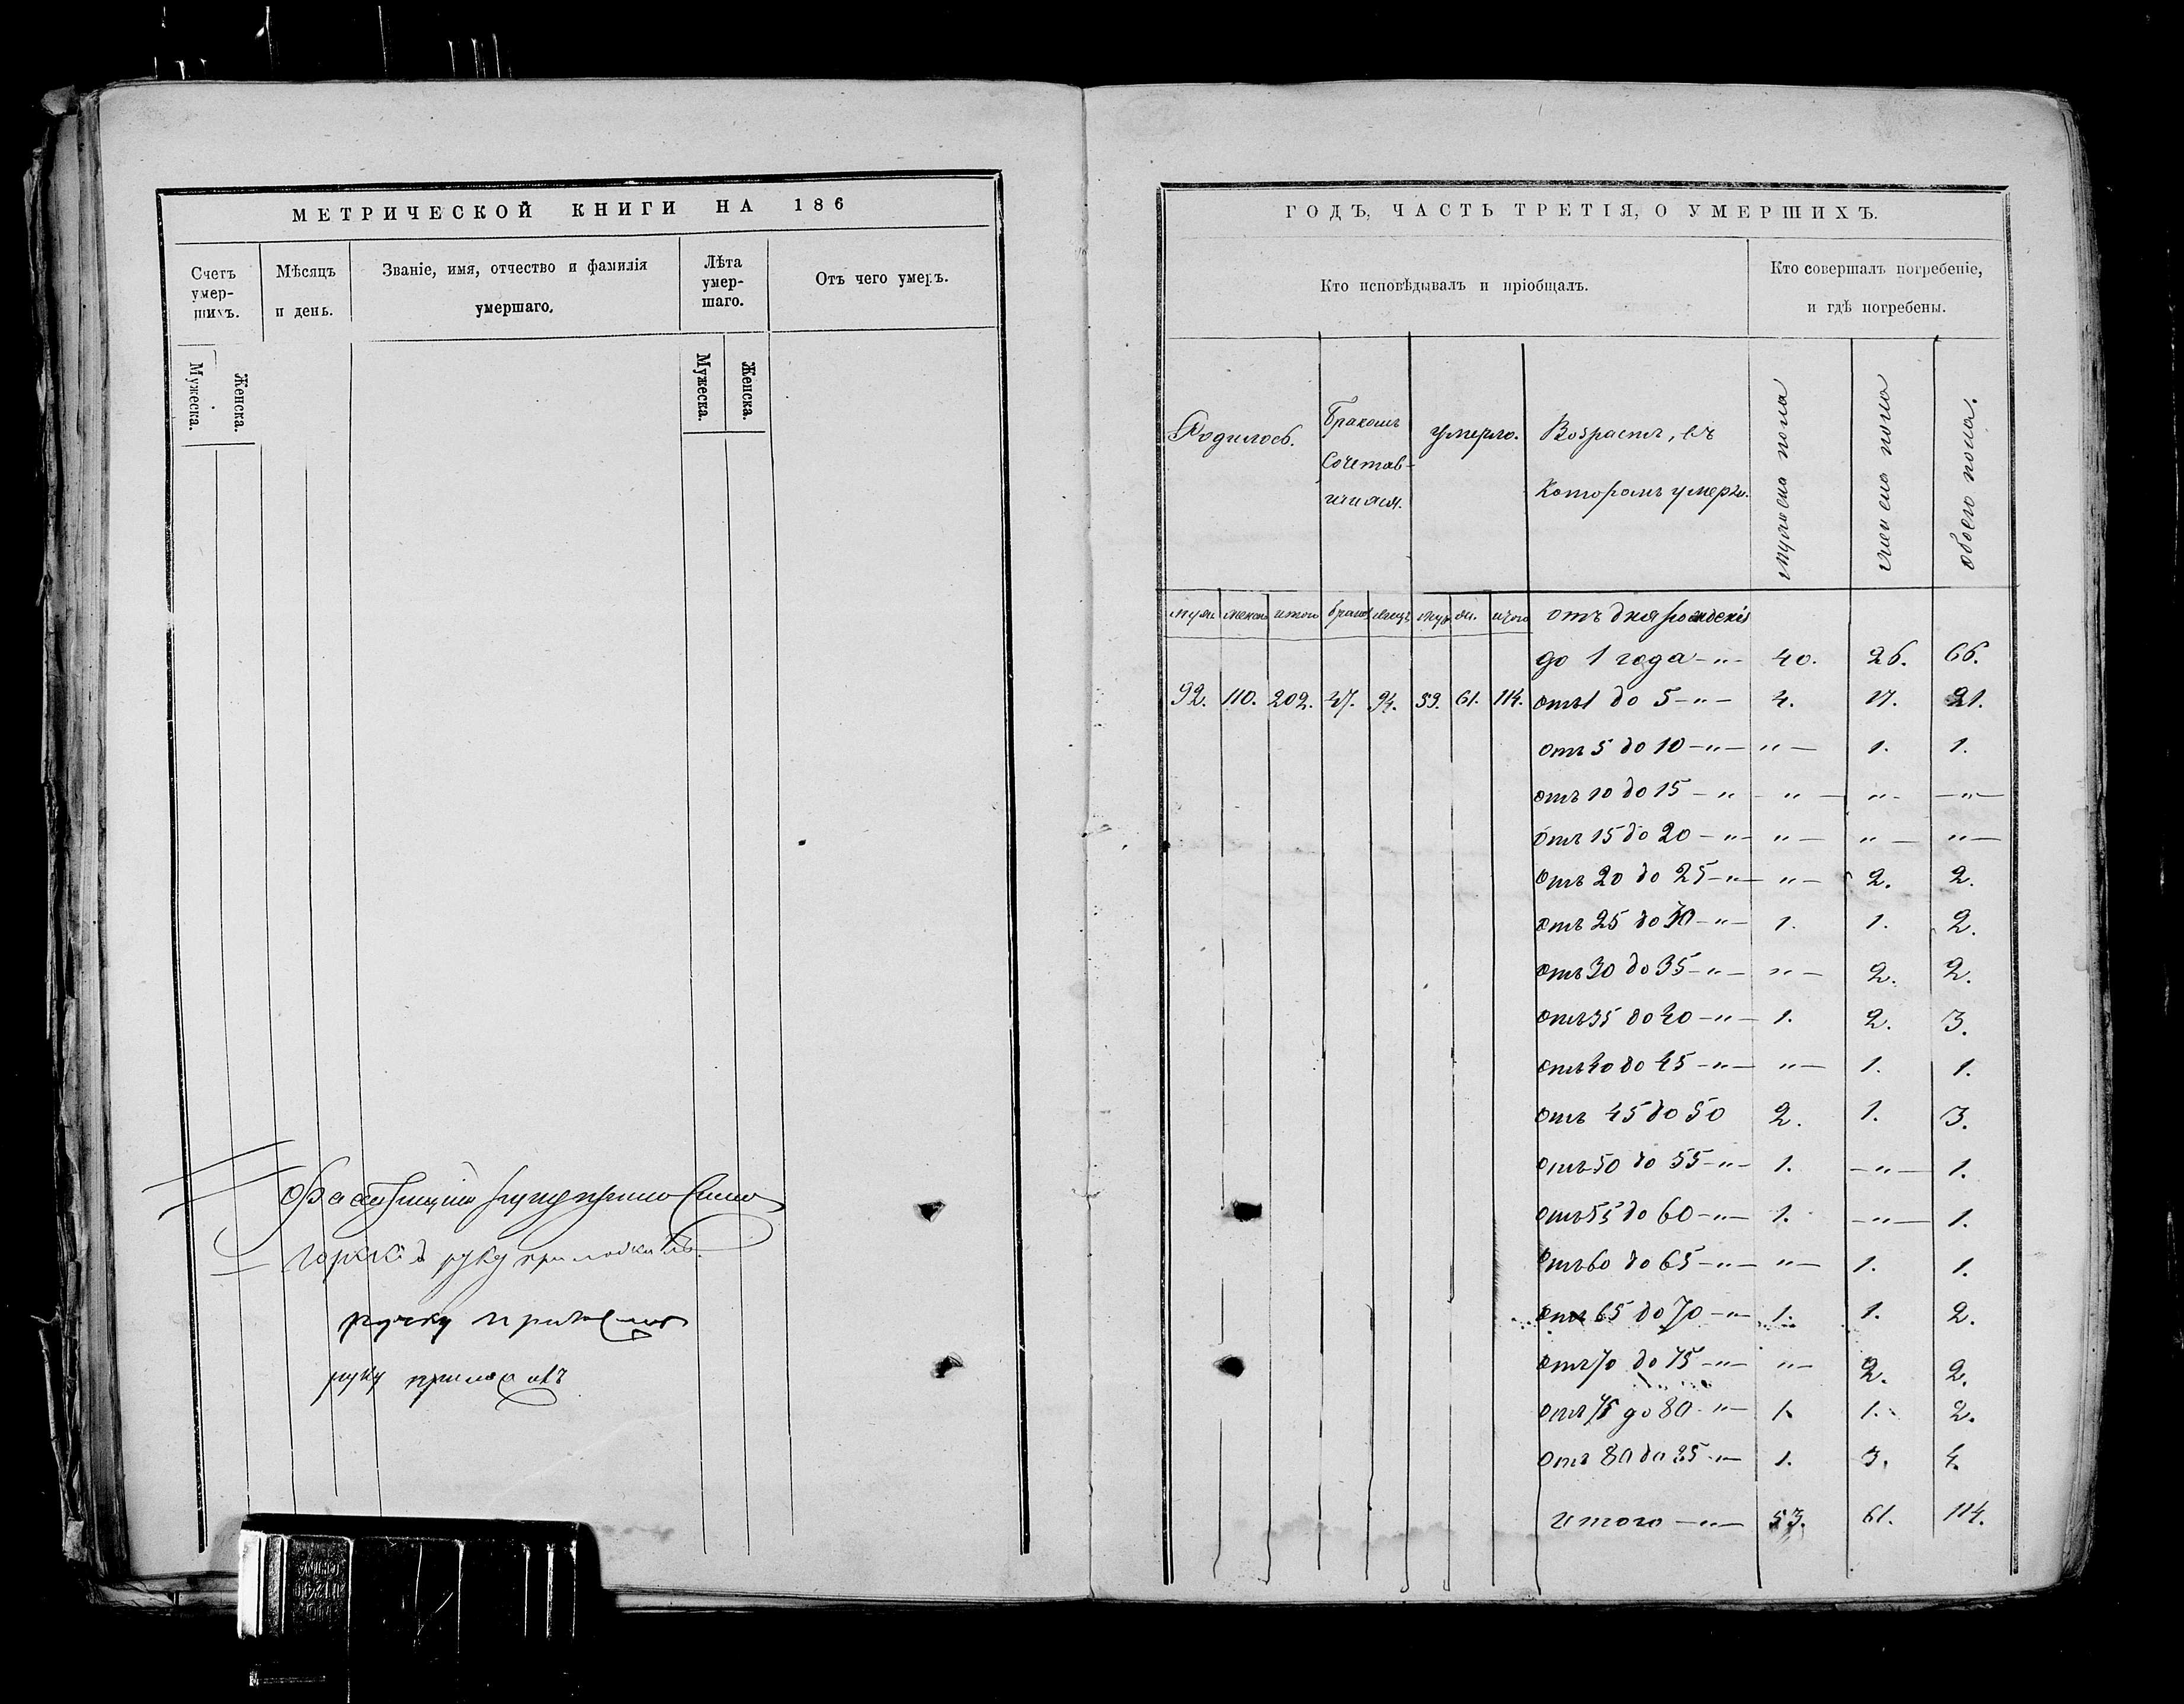 МЕТРИЧЕСКОЙ КНИГИ НА 186
Счетъ умер- шихъ.
Мѣсяцъ и день.
Званіе, имя, отчество и фамилія умершаго.
Лѣта умер- шаго.
Отъ чего умеръ.
Мужеска.
Женска.
Мужеска.
Женска.
руку приложилъ.
руку
руку
ГОДЪ, ЧАСТЬ ТРЕТІЯ, О УМЕРШИХЪ.
Кто исповѣдывалъ и пріобщалъ.
Кто совершалъ погребеніе, и гдѣ погребены.
Родилось.
Бракомъ Сочетав-
умерло.
Возрастъ, въ Которомъ умерло.
мужеска пола
женска пола
обоего пола.
муж. женск. итого брак. лицъ муж. ж. итого отъ дня рожденія
до 1 года -"- 40. 26. 66.
92. 110. 202. 47. 94. 53. 61. 114. отъ 1 до 5 -"- 4. 17. 21.
отъ 5 до 10 -"- "- 1. 1.
отъ 10 до 15 -" -"- "- -"-
отъ 15 до 20 -"- "- "- "-
отъ 20 до 25 -"- "- 2. 2.
отъ 25 до 30 -"- 1. 1. 2.
отъ 30 до 35 -"- "- 2. 2.
отъ 35 до 40 -"- 1. 2. 3.
отъ 40 до 45 -"- "- 1. 1.
отъ 45 до 50 2. 1. 3.
отъ 50 до 55 -"- 1. -"- 1.
отъ 55 до 60 -"- 1. -"- 1.
отъ 60 до 65 -"- "- 1. 1.
отъ 65 до 70 -"- 1. 1. 2.
отъ 70 до 75 -"- "- 2. 2.
отъ 75 до 80 -"- 1. 1. 2.
отъ 80 до 85 -"- 1. 3. 4.
итого -"- 53. 61. 114.